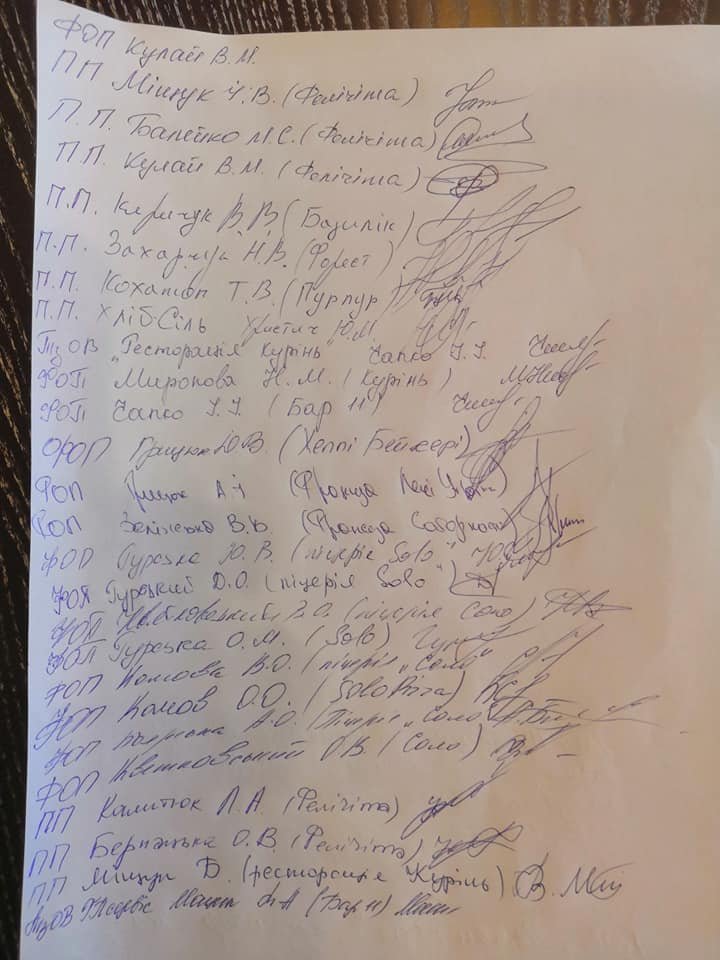 ФОП Кулай В.М.
ПП Міщук Ч.В. (Фелічіта)
П.П. Балейко М.С. (Фелічіта)
П.П. Кулай В.М. (Фелічіта)
П.П. Киричук В.В (Базилік)
П.П. Н.В. (Форест)
П.П. Т.В. (Пурпур)
П.П. Хліб-Сіль Христич Ю.М
ТзОВ „Ресторація Курінь" Чапко І.І
ФОП Миронова Н.М. (Курінь)
ФОП Чапко І.І (Бар 11)
ФОП Грицюк Ю.В. (Хеппі Бейкері)
ФОП Грицюк А.І (Француа Лесі
ФОП В.Ю. (Француа
ФОП Гурецка Ю.В. (піцерія Solo"
ФОП Гурецкий Д.О. (піцерія „Solo")
ФОП В.О. (піцерія Соло)
ФОП Гурецька О.М. (Solo)
ФОП В.О. (піцерія „Соло"
ФОП Комов О.О. (Solo
ФОП А.О. (Піцерія „Соло
ФОП Квятковський О.В. (Соло)
ПП Калитюк Л.А. (Фелічіта)
ПП О.В. (Фелічіта)
ПП Міщук Б. (ресторація Курінь)
ТзОВ (Бар 11)